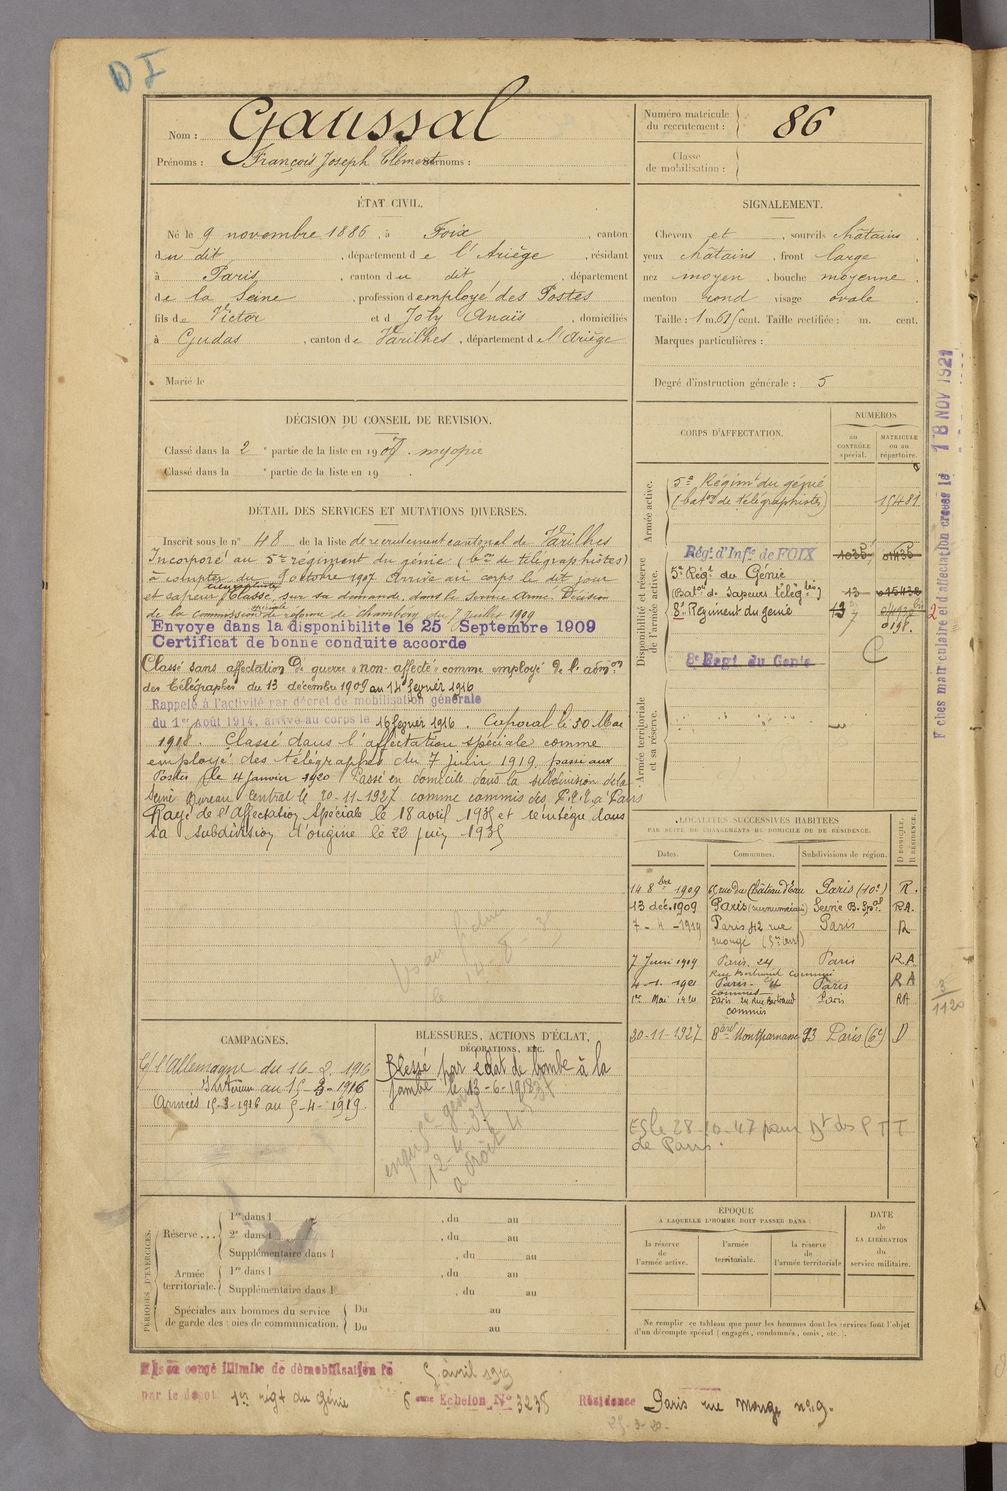 D I
Nom : Gaussal
Prénoms : François Joseph Clément Surnoms :
Numéro matricule du recrutement : 86
Classe de mobilisation :
ÉTAT CIVIL.
Né le 9 novembre 1886, à Foix, canton
du dit, département de l'Ariège, résidant
à Paris, canton du dit, département
de la Seine, profession d employé des Postes
fils de Victor et d Joly Anaïs, domiciliés
à Gudas, canton de Varilhes, département de l'Ariège
Marié le
SIGNALEMENT.
Cheveux et , sourcils châtains,
yeux châtains, front large,
nez moyen, bouche moyenne,
menton rond visage ovale
Taille : 1 m. 61 cent. Taille rectifiée : m. cent.
Marques particulières :
Degré d'instruction générale : 5
DÉCISION DU CONSEIL DE REVISION.
Classé dans la 2e partie de la liste en 1907. myopie
Classé dans la e partie de la liste en 19 .
DÉTAIL DES SERVICES ET MUTATIONS DIVERSES.
Inscrit sous le n° 48 de la liste de recrutement cantonal de Varilhes
Incorporé au 5e régiment du génie (bon de télégraphistes)
à compter du 8 octobre 1907 Arrivé au corps le dit jour
et sapeur 2e classe sur sa demande, dans le Service Armé. Décision
de la Commission spéciale de réforme de Chambery du 7 juillet 1909
Envoye dans la disponibilite le 25 Septembre 1909
Certificat de bonne conduite accorde
Classé sans affectation de guerre "non-affecté" comme employé de l'admon
des télégraphes du 13 décembre 1909 au 14 février 1916
Rappelé à l'activité par décret de mobilisation générale
du 1er août 1914, arrivé au corps le 16 février 1916. Caporal le 30 Mai
1918. Classé dans l'affectation spéciale comme
employé des télégraphes du 7 juin 1919, passé aux
Postes le 4 janvier 1920 Passé en domicile dans la subdivision de la
Seine Bureau Central le 20-11-1927 comme commis des P.T.T. à Paris
Rayé de l'Affectation Spéciale le 18 avril 1935 et réintégré dans
sa subdivision d'origine le 22 juin 1935
CORPS D'AFFECTATION.
NUMÉROS
au CONTRÔLE spécial.
MATRICULE ou au répertoire.
Armée active.
5e Régimt du génie
(baton de télégraphistes) 15481
Disponibilité et réserve de l'armée active.
Régt d'Infie de FOIX
5e Régt du Génie
(Baton de Sapeurs télégtes)
8e Régiment du génie
8e Regt du Genie
Armée territoriale et sa réserve.
Fiches matriculaire et d'affectation creees le 18 NOV 1921
LOCALITÉS SUCCESSIVES HABITÉES
PAR SUITE DE CHANGEMENTS DE DOMICILE OU DE RÉSIDENCE.
Dates. Communes. Subdivisions de région. D DOMICILE. R RÉSIDENCE.
14 8bre 1909 rue du Château d'Eau Paris (10e) R.
13 déc. 1909 Paris (surnuméraire) Seine B. Spal RA.
7 - 4 - 1919 Paris 42 rue Monge (5e arrt) Paris R
7 Juin 1919 Paris. 24 Rue Bertrand commis Paris R.A
4 - 1 - 1920 Paris - commis Paris R A
1er Mai 1920 Paris 24 Rue Bertrand commis Paris RA
20-11-1927 Bard Montparnasse 93 Paris (6e) D
3
1120
ESle 28-10-47 pour Dt des P T T
de Paris.
CAMPAGNES.
C/ l'Allemagne du 16-2-1916
Intérieur au 15-3-1916
Armées 15-3-1916 au 5-4-1919.
BLESSURES, ACTIONS D'ÉCLAT,
DÉCORATIONS, ETC.
Blessé par éclat de bombe à la
jambe le 13-6-1918
PÉRIODES D'EXERCICES.
Réserve ... 1re dans l , du au
2e dans l , du au
Supplémentaire dans l , du au
Armée territoriale. 1re dans l , du au
Supplémentaire dans l , du au
Spéciales aux hommes du service
de garde des voies de communication. Du au
Du au
ÉPOQUE
À LAQUELLE L'HOMME DOIT PASSER DANS :
la réserve de l'armée active.
l'armée territoriale.
la réserve de l'armée territoriale
DATE de LA LIBÉRATION du service militaire.
Ne remplir ce tableau que pour les hommes dont les services font l'objet
d'un décompte spécial (engagés, condamnés, omis, etc.).
Mis en congé illimité de démobilisation le 5 avril 1919
par le depot 1er régt du Génie 6eme Echelon No 3235 Résidence Paris rue Monge no 9.
25-3-20-